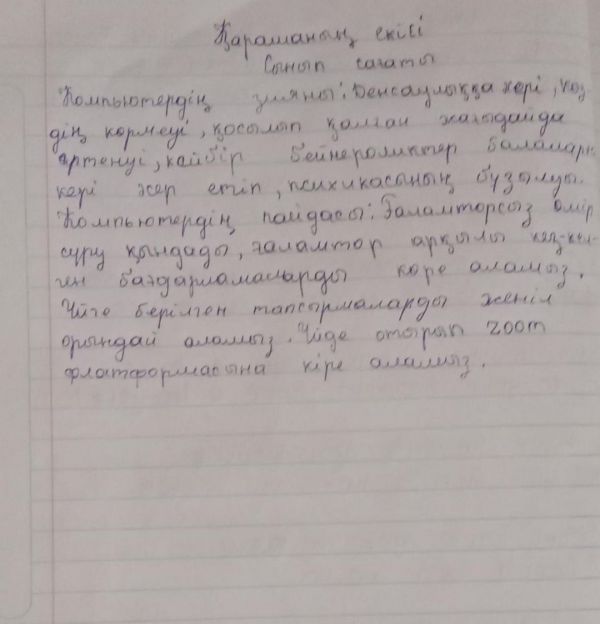 Қарашаның екісі
Сынып сағаты
Компьютердің зияны: Денсаулыққа кері, көз
дің көрмеуі, қосылып қалған жағыдайда
өртенуі, кейбір бейнероликтер балаларға
кері әсер етіп, психикасының бұзылуы.
Компьютердің пайдасы: Ғаламторсыз өмір
сүру қындады, ғаламтор арқылы кез-кел-
ген бағдарламаларды көре аламыз.
Үйге берілген тапсырмаларды женіл
орындай аламыз. Үйде отырып zoom
флатформасына кіре аламыз.